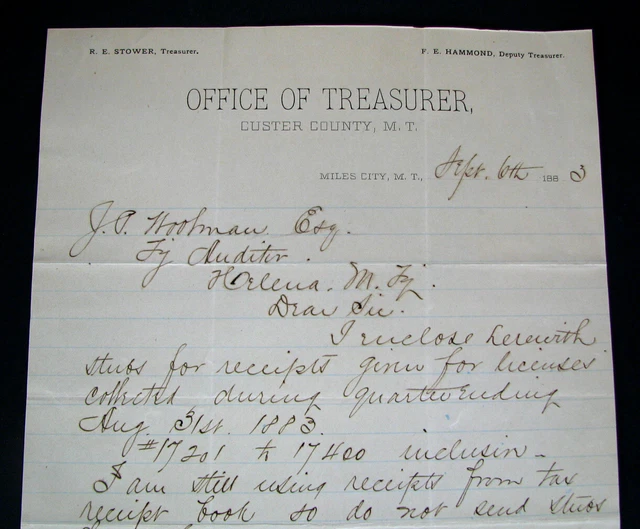 R. E. STOWER, Treasurer. F. E. HAMMOND, Deputy Treasurer.
OFFICE OF TREASURER,
CUSTER COUNTY, M. T.
MILES CITY, M. T., Sept. 6th 1883
J. P. Woolman Esq.
Ty Auditor.
Helena. M. Ty.
Dear Sir.
I enclose herewith
stubs for receipts given for licenses
collected during quarter ending
Aug. 31st. 1883.
#17201 to 17400 inclusive -
I am still using receipts from tax
receipt book so do not send stubs